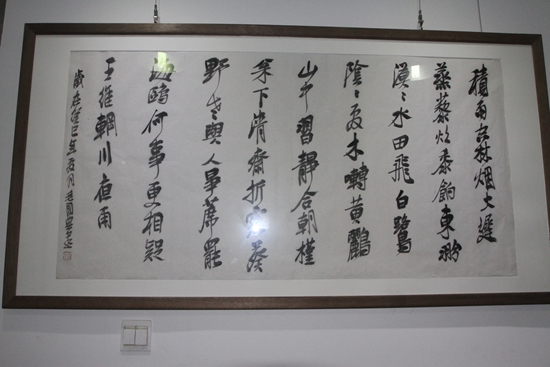 積雨空林烟火遲
蒸藜炊黍餉東菑
漠〻水田飛白鷺
陰〻夏木囀黃鸝
山中習靜朝槿
松下清齋折露葵
野老與人爭席罷
海鷗何事更相疑
王維輞川夜雨
歲在癸巳年夏月